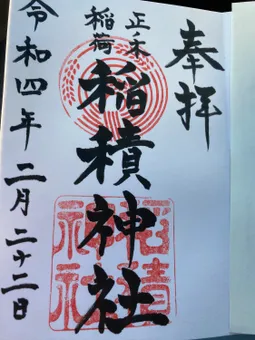 奉拝
正ノ木
稲荷
稲積神社
令和四年二月二十二日
稲積
神社